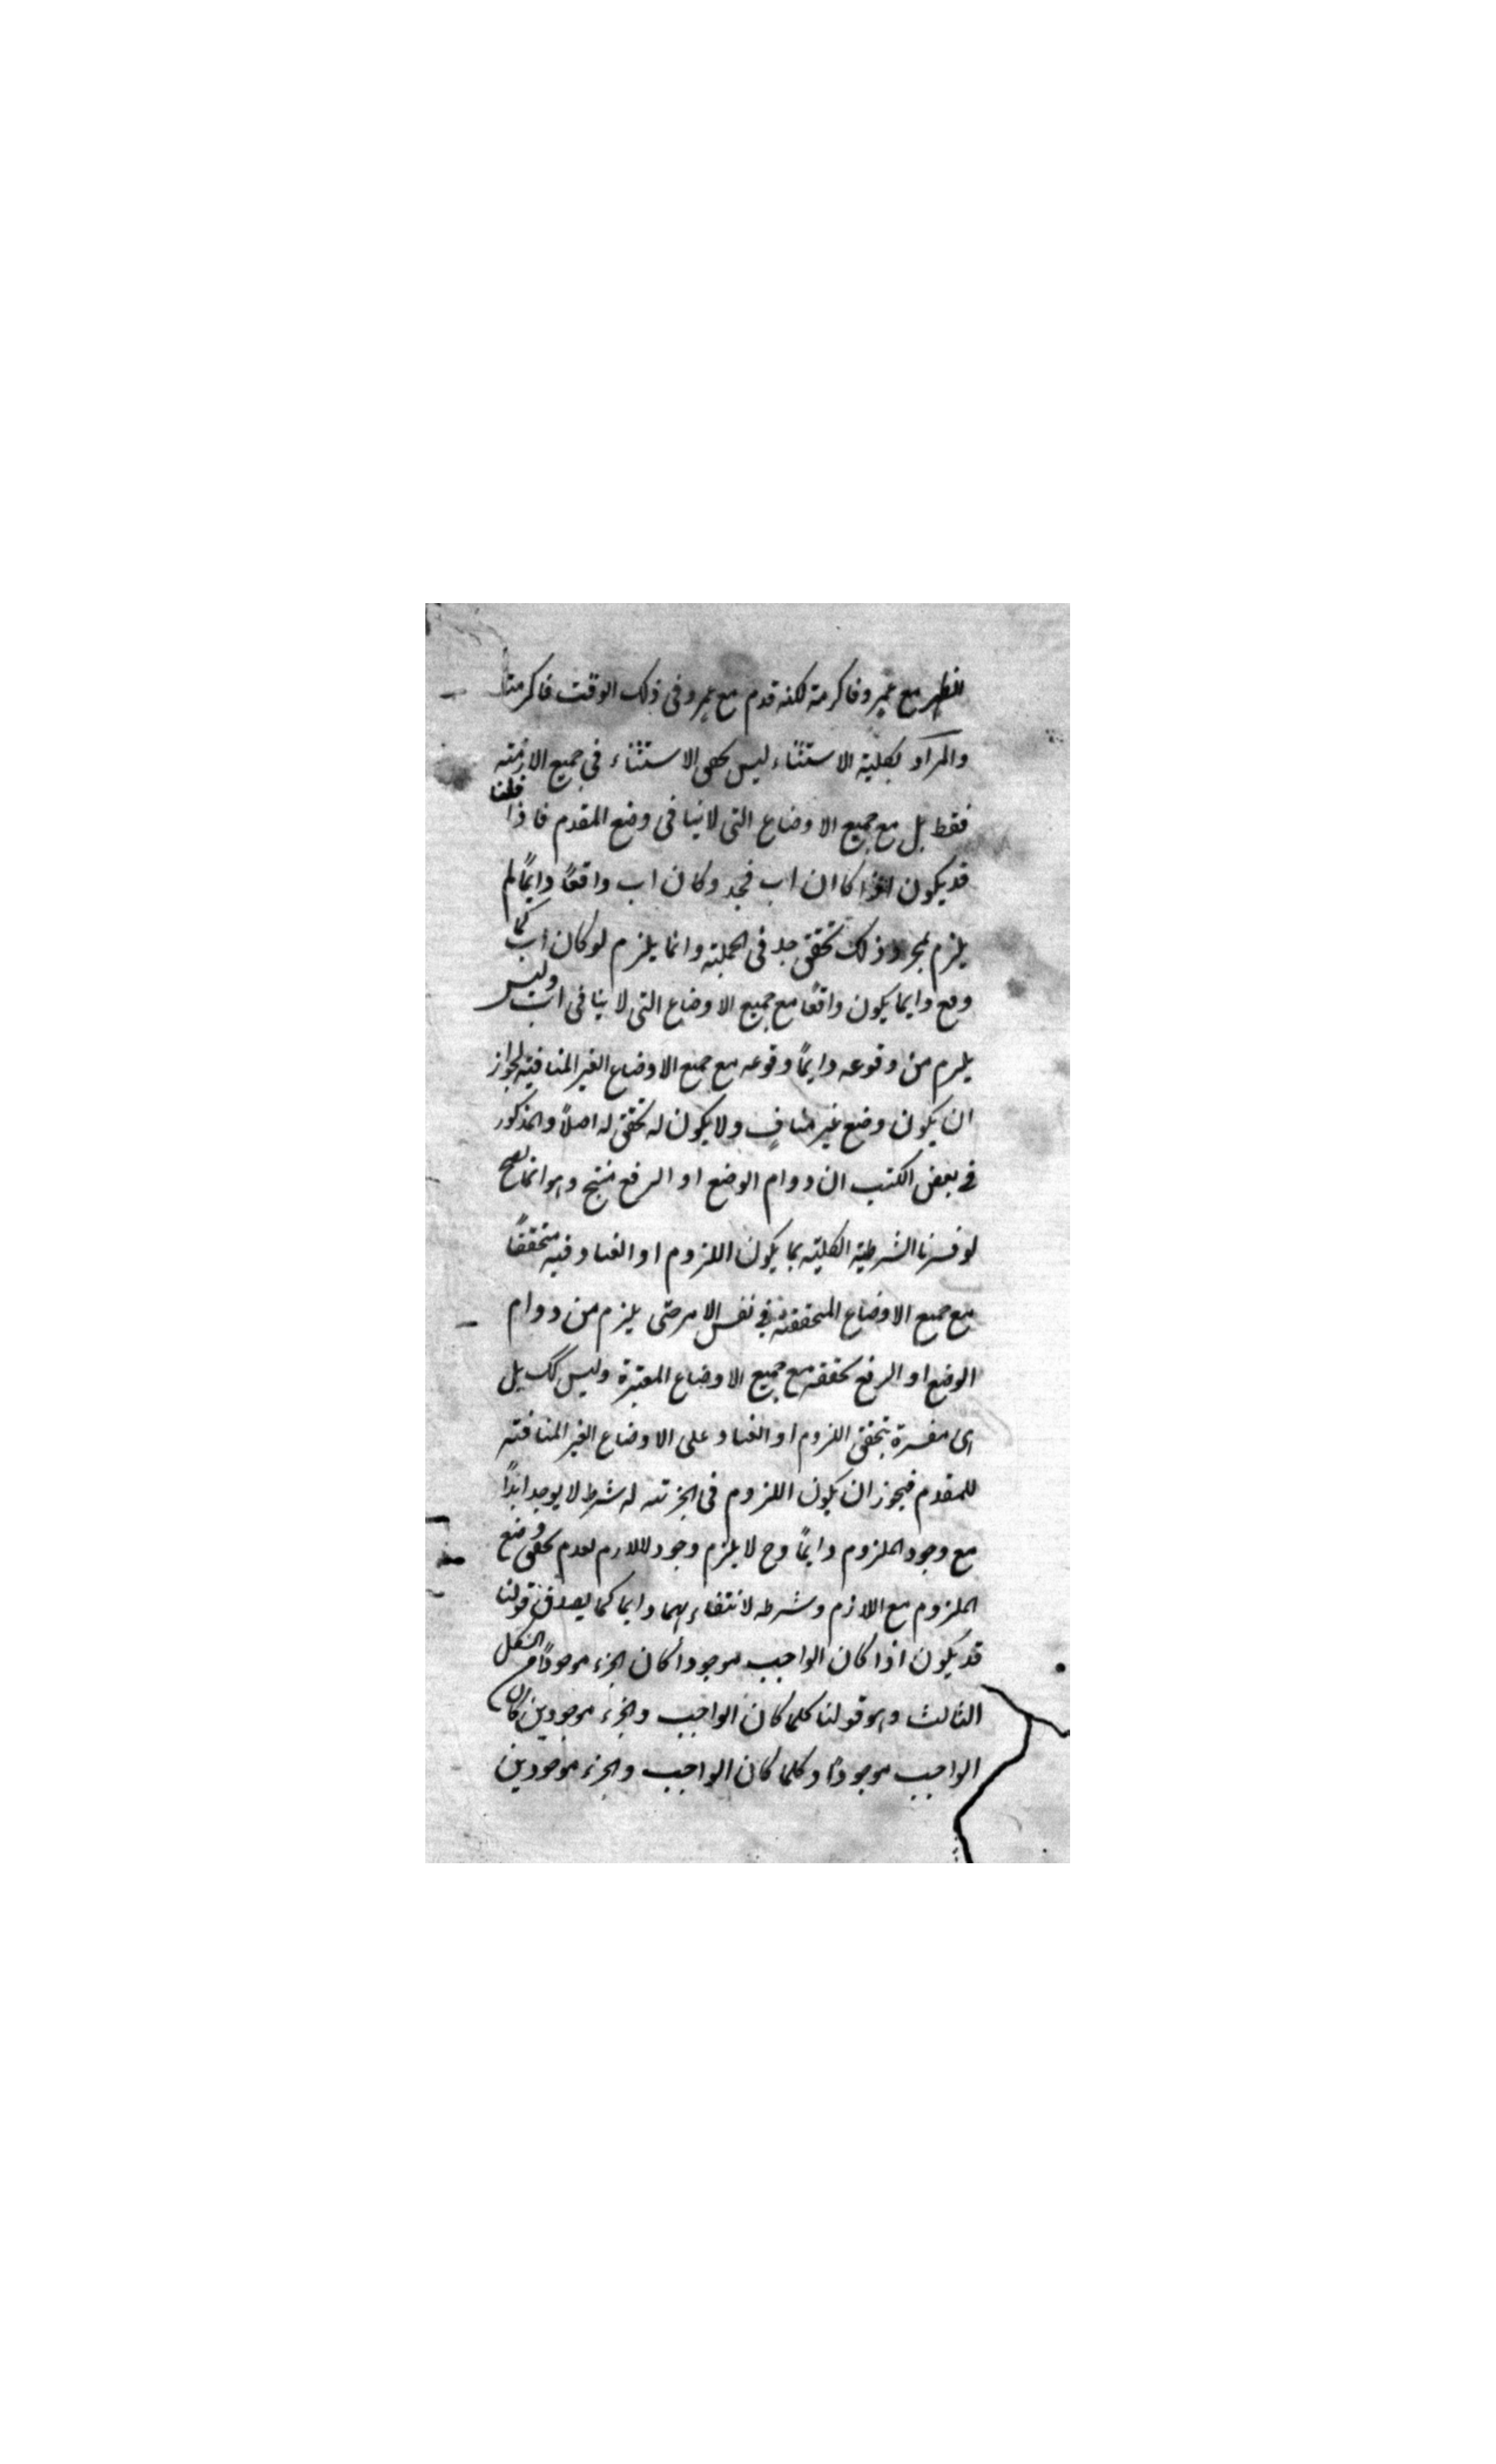 الظهر مع عمرو فاكرمته لكنه قدم مع عمرو في ذلك الوقت فاكرمته
والمراد بكلية الاستثناء ليس تحقق الاستثناء في جميع الازمنة
فقط بل مع جميع الاوضاع التي لا ينافي وضع المقدم فاذا قلنا
قد يكون اذا كان اب فجد وكان اب واقعًا دايمًا لم
يلزم بمجرد ذلك تحقق جد في الجملة وانما يلزم لو كان اب كما
وقع دايما يكون واقعًا مع جميع الاوضاع التي لا ينافي اب وليس
يلزم من وقوعه دايمًا وقوعه مع جميع الاوضاع الغير المنافية لجواز
ان يكون وضع غير منافٍ ولا يكون له تحقق له اصلًا والمذكور
في بعض الكتب ان دوام الوضع او الرفع منتج وهو انما يصح
لو فسرنا الشرطية الكلية بما يكون اللزوم او العناد فيه متحققًا
مع جميع الاوضاع المتحققة في نفس الامر حتى يلزم من دوام
الوضع او الرفع تحققه مع جميع الاوضاع المعتبرة وليس كك بل
هى مفسرة بتحقق اللزوم او العناد على الاوضاع الغير المنافته
للمقدم فيجوز ان يكون اللزوم في الجزئية له شرط لا يوجد ابدًا
مع وجود الملزوم دايمًا وح لا يلزم وجود اللازم لعدم تحقق وضع
الملزوم مع اللازم وشرطه لانتفاءهما دايما كما يصدق قولنا
قد يكون اذا كان الواجب موجودا كان الجزء موجودًا من الشكل
الثالث وهو قولنا كلما كان الواجب والجزء موجودين كان
الواجب موجودًا وكلما كان الواجب والجزء موجودين